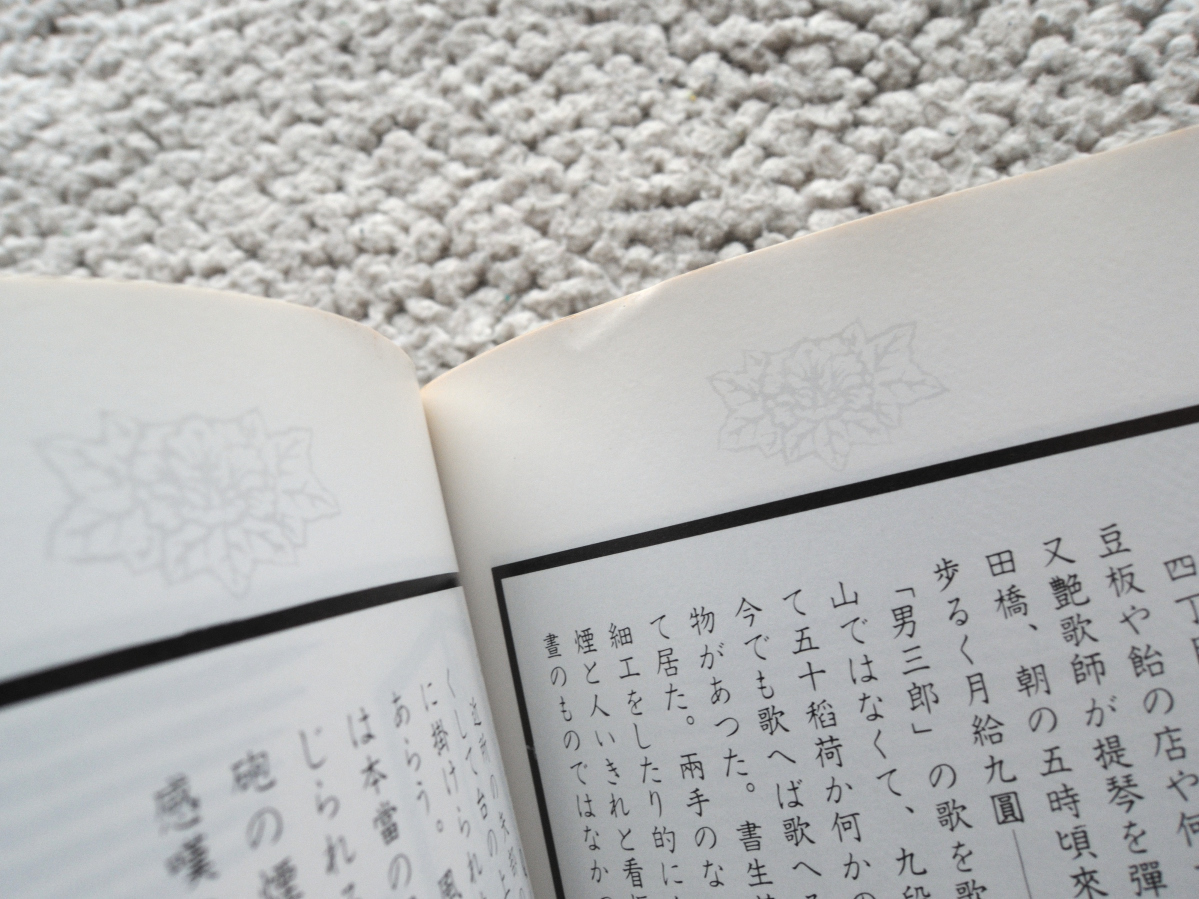 四丁
豆板や飴の店や何
又艶歌師が提琴を彈
田橋、朝の五時頃來
歩るく月給九圓――
「男三郎」の歌を歌
山ではなくて、九段
て五十稻荷か何かの
今でも歌へば歌へ
物があつた。書生
て居た。兩手のな
細工をしたり的に
煙と人いきれと看
晝のものではなか
くして台の
に掛けられ
あらう。
は本當の
じられ
砲の煙
感嘆